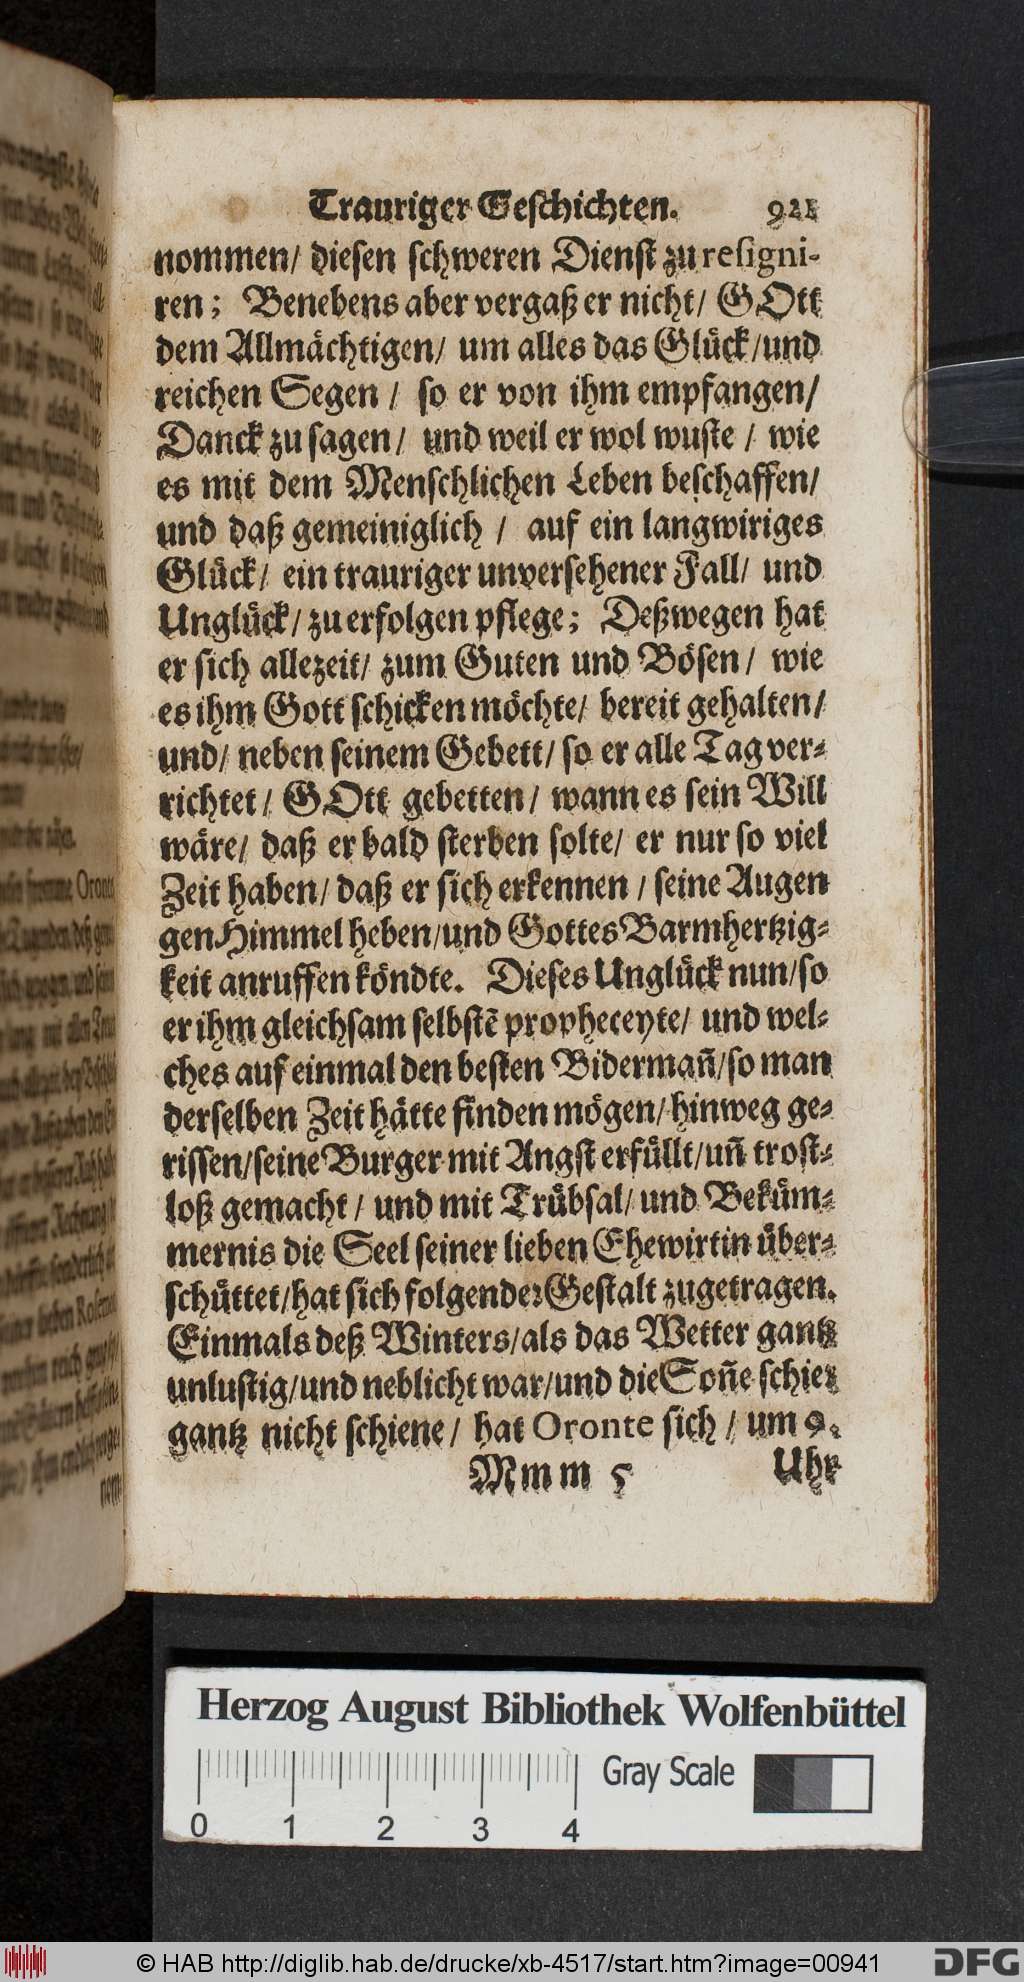 Trauriger Geschichten. 921
nommen/ diesen schweren Dienst zu resigni-
ren; Benebens aber vergaß er nicht/ GOtt
dem Allmächtigen/ um alles das Glück/und
reichen Segen/ so er von ihm empfangen/
Danck zu sagen/ und weil er wol wuste/ wie
es mit dem Menschlichen Leben beschaffen/
und daß gemeiniglich/ auf ein langwiriges
Glück/ ein trauriger unversehener Fall/ und
Unglück/ zu erfolgen pflege; Deßwegen hat
er sich allezeit/ zum Guten und Bösen/ wie
es ihm Gott schicken möchte/ bereit gehalten/
und/ neben seinem Gebett/ so er alle Tag ver-
richtet/ GOtt gebetten/ wann es sein Will
wäre/ daß er bald sterben solte/ er nur so viel
Zeit haben/ daß er sich erkennen/ seine Augen
gen Himmel heben/und Gottes Barmhertzig-
keit anruffen köndte. Dieses Unglück nun/so
er ihm gleichsam selbstē propheceyte/ und wel-
ches auf einmal den besten Bidermañ/so man
derselben Zeit hätte finden mögen/hinweg ge-
rissen/seine Burger mit Angst erfüllt/uñ trost-
loß gemacht/ und mit Trübsal/ und Beküm-
mernis die Seel seiner lieben Ehewirtin über-
schüttet/hat sich folgender Gestalt zugetragen.
Einmals deß Winters/als das Wetter gantz
unlustig/und neblicht war/und die Soñe schier
gantz nicht schiene/ hat Oronte sich/ um 9.
Mmm 5 Uhr
Herzog August Bibliothek Wolfenbüttel
Gray Scale
0 1 2 3 4
© HAB http://diglib.hab.de/drucke/xb-4517/start.htm?image=00941
DFG